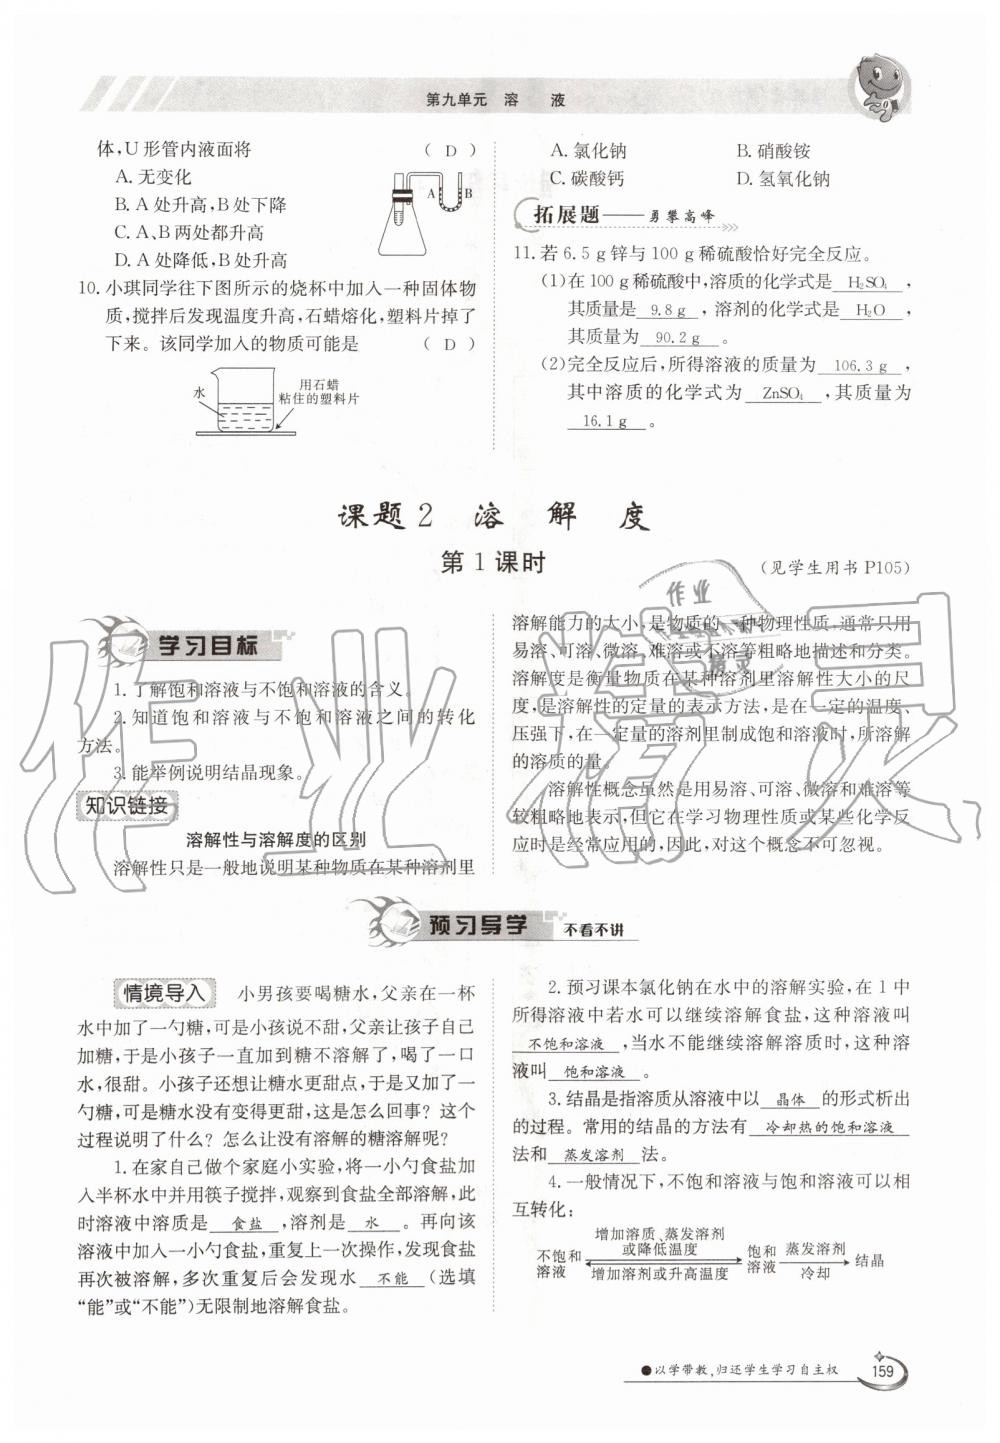 第九单元 溶 液
体,U 形管内液面将 ( D )
A. 无变化
B. A 处升高,B 处下降
C. A、B 两处都升高
D. A 处降低,B 处升高
A B
10. 小琪同学往下图所示的烧杯中加入一种固体物
质,搅拌后发现温度升高,石蜡熔化,塑料片掉了
下来。该同学加入的物质可能是 ( D )
水
用石蜡
粘住的塑料片
A. 氯化钠 B. 硝酸铵
C. 碳酸钙 D. 氢氧化钠
拓展题——勇攀高峰
11. 若 6.5 g 锌与 100 g 稀硫酸恰好完全反应。
(1)在 100 g 稀硫酸中,溶质的化学式是 H₂SO₄ ,
其质量是 9.8 g ,溶剂的化学式是 H₂O ,
其质量为 90.2 g 。
(2)完全反应后,所得溶液的质量为 106.3 g ,
其中溶质的化学式为 ZnSO₄ ,其质量为
16.1 g 。
课题 2 溶 解 度
第 1 课时
(见学生用书 P105)
学习目标
1. 了解饱和溶液与不饱和溶液的含义。
2. 知道饱和溶液与不饱和溶液之间的转化
方法。
3. 能举例说明结晶现象。
知识链接
溶解性与溶解度的区别
溶解性只是一般地说明某种物质在某种溶剂里
溶解能力的大小,是物质的一种物理性质,通常只用
易溶、可溶、微溶、难溶或不溶等粗略地描述和分类。
溶解度是衡量物质在某种溶剂里溶解性大小的尺
度,是溶解性的定量的表示方法,是在一定的温度、
压强下,在一定量的溶剂里制成饱和溶液时,所溶解
的溶质的量。
溶解性概念虽然是用易溶、可溶、微溶和难溶等
较粗略地表示,但它在学习物理性质或某些化学反
应时是经常应用的,因此,对这个概念不可忽视。
作业精灵
预习导学 不看不讲
情境导入 小男孩要喝糖水,父亲在一杯
水中加了一勺糖,可是小孩说不甜,父亲让孩子自己
加糖,于是小孩子一直加到糖不溶解了,喝了一口
水,很甜。小孩子还想让糖水更甜点,于是又加了一
勺糖,可是糖水没有变得更甜,这是怎么回事?这个
过程说明了什么?怎么让没有溶解的糖溶解呢?
1. 在家自己做个家庭小实验,将一小勺食盐加
入半杯水中并用筷子搅拌,观察到食盐全部溶解,此
时溶液中溶质是 食盐 ,溶剂是 水 。再向该
溶液中加入一小勺食盐,重复上一次操作,发现食盐
再次被溶解,多次重复后会发现水 不能 (选填
“能”或“不能”)无限制地溶解食盐。
2. 预习课本氯化钠在水中的溶解实验,在 1 中
所得溶液中若水可以继续溶解食盐,这种溶液叫
不饱和溶液 ,当水不能继续溶解溶质时,这种溶
液叫 饱和溶液 。
3. 结晶是指溶质从溶液中以 晶体 的形式析出
的过程。常用的结晶的方法有 冷却热的饱和溶液
法和 蒸发溶剂 法。
4. 一般情况下,不饱和溶液与饱和溶液可以相
互转化:
不饱和
溶液
增加溶质、蒸发溶剂
或降低温度
增加溶剂或升高温度
饱和
溶液
蒸发溶剂
冷却
结晶
●以学带教,归还学生学习自主权
159